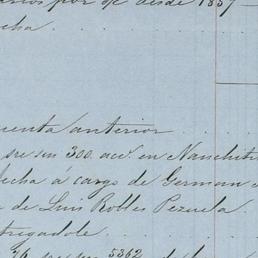 por qe desde 1857
fecha
cuenta anterior
pr sus 300. acc.s en Nanchit
fecha á cargo de German
de Luis Robles Pezuela.
tregadole
36 5362